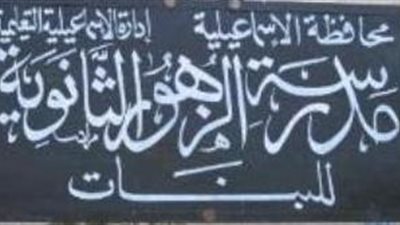 محافظة الاسماعيلية إدارة الاسماعيلية التعليمية
مدرسة الزهور الثانوية
للبنات